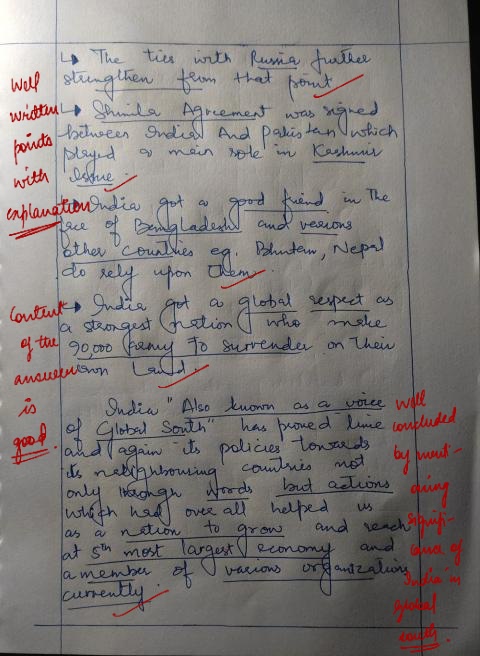 ↳ The ties with Russia further
strengthen from that point
↳ Shimla Agreement was signed
between India And Pakistan which
played a main role in Kashmir
Issue.
India got a good friend in the
face of Bangladesh and various
other countries eg. Bhutan, Nepal
do rely upon them.
India got a global respect as
a strongest nation who make
90,000 Army to surrender on their
own Land.
India "Also known as a voice
of Global South" has proved time
and again its policies towards
its neighbouring countries not
only through words but actions
which had over all helped us
as a nation to grow and reach
at 5th most largest economy and
a member of various organizations
currently.
Well
written
points
with
explanation
Content
of the
answer
is
good.
Well
concluded
by menti-
oning
signifi-
cance of
India in
global
south.